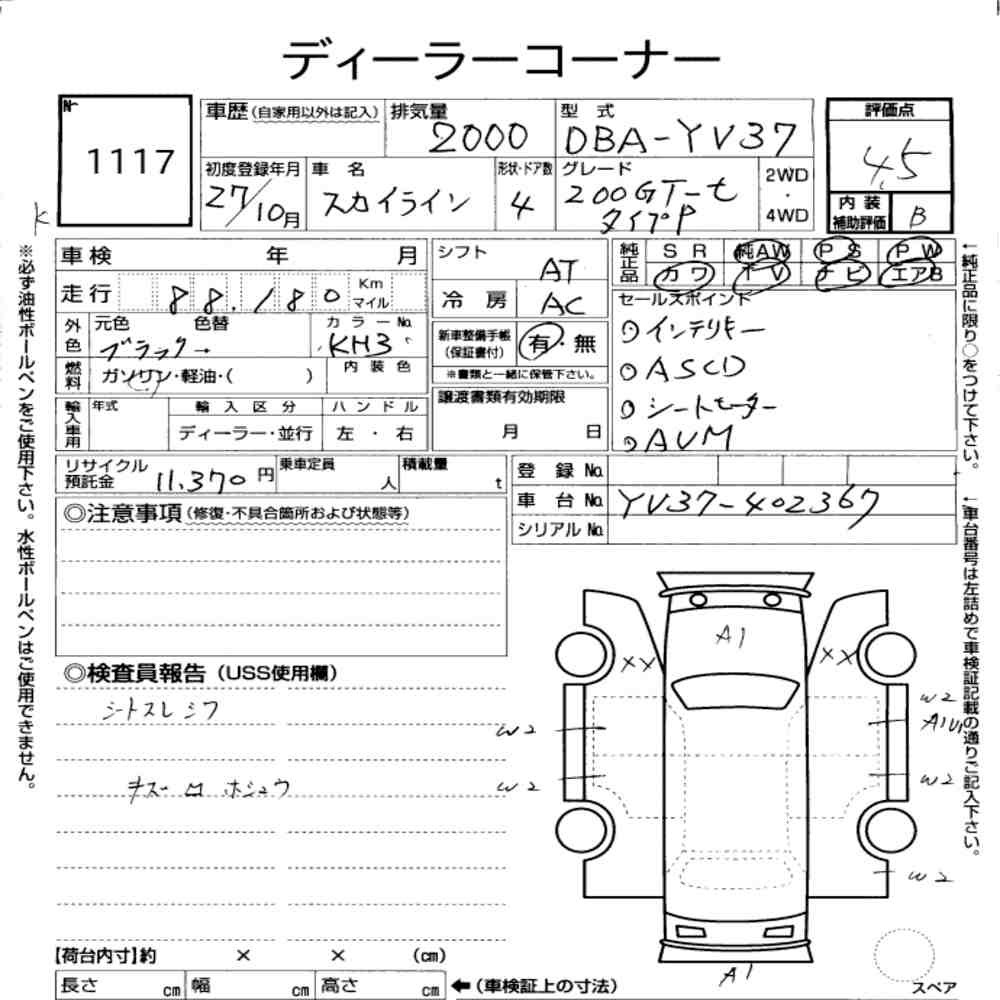 ディーラーコーナー
№
1117
K
車歴(自家用以外は記入)
排気量
2000
型 式
DBA-YV37
評価点
4.5
初度登録年月
27/10月
車 名
スカイライン
形状・ドア数
4
グレード
200GT-t
タイプP
2WD
・
4WD
内 装
補助評価
B
車 検 年 月
シフト
AT
純正品
SR 純AW PS PW
カワ TV ナビ エアB
走 行
88.180
Km
マイル
冷 房
AC
セールスポイント
インテリキー
ASCD
シートモーター
AVM
外色
元色 色替
ブラック
カラーNo.
KH3
新車整備手帳
(保証書付)
有・無
※書類と一緒に保管下さい。
燃料
ガソリン・軽油・( )
内 装 色
譲渡書類有効期限
月 日
輸入車用
年式
輸 入 区 分
ハ ン ド ル
ディーラー・並行
左 ・ 右
リサイクル
預託金
11.370円
乗車定員
人
積載量
t
登 録 No.
車 台 No.
YV37-402367
シリアル No.
◎注意事項(修復・不具合箇所および状態等)
◎検査員報告(USS使用欄)
シートスレ シワ
キズ ホシュウ
A1
XX
XX
W2
W2
W2
W2
W2
A1
【荷台内寸】約 × × (cm)
長さ cm
幅 cm
高さ cm
←(車検証上の寸法)
スペア
※必ず油性ボールペンをご使用下さい。水性ボールペンはご使用できません。
←純正品に限り○をつけて下さい。
←車台番号は左詰めで車検証記載の通りご記入下さい。